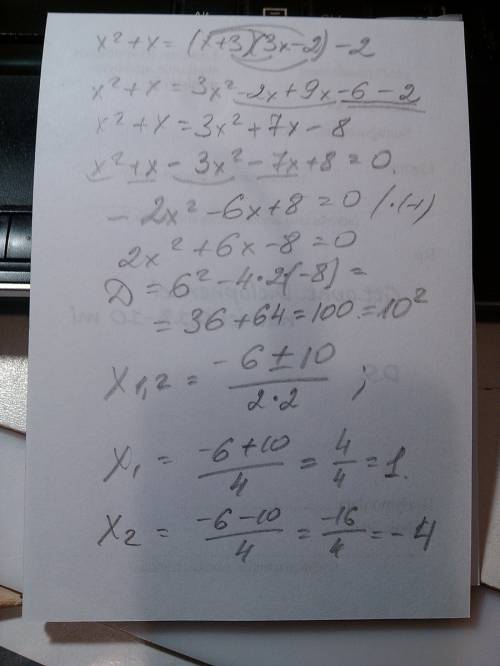 x² + x = (x+3)(3x-2) - 2
x² + x = 3x² - 2x + 9x - 6 - 2
x² + x = 3x² + 7x - 8
x² + x - 3x² - 7x + 8 = 0.
- 2x² - 6x + 8 = 0 /·(-1)
2x² + 6x - 8 = 0
D = 6² - 4·2(-8) =
= 36 + 64 = 100 = 10²
x₁,₂ = (-6 ± 10)/(2·2) ;
x₁ = (-6+10)/4 = 4/4 = 1.
x₂ = (-6-10)/4 = -16/4 = -4